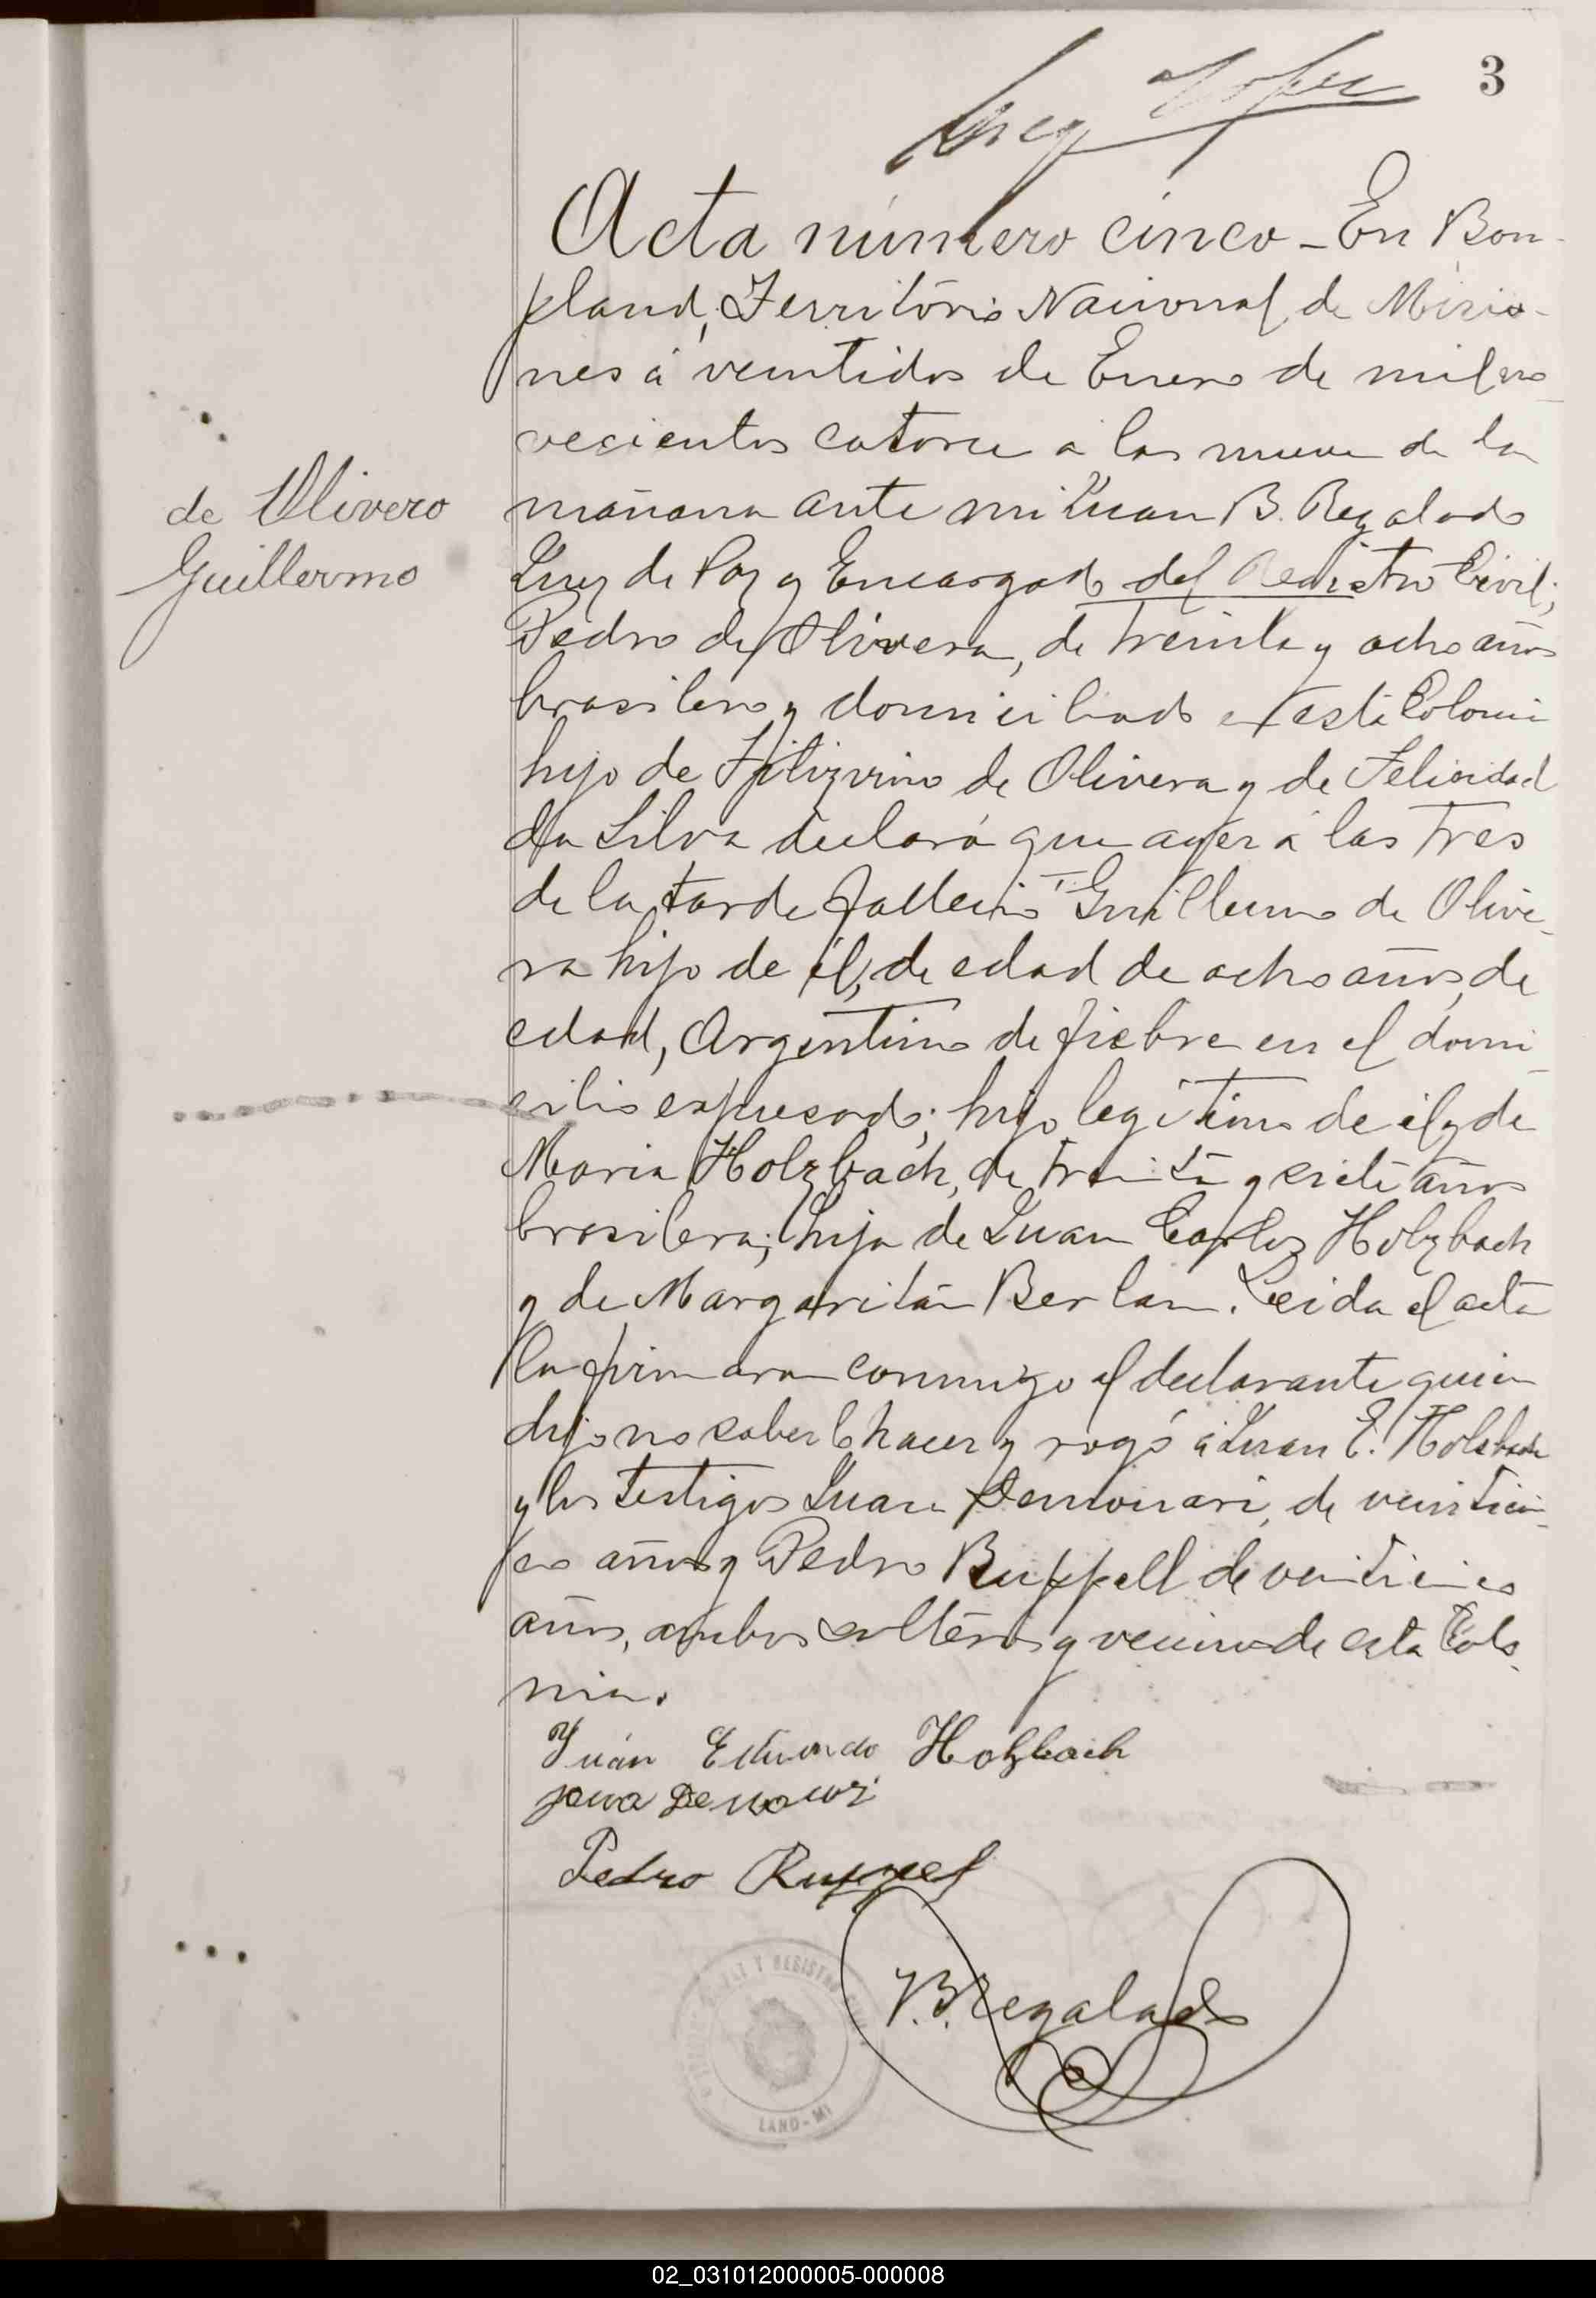 3
Acta número cinco - En Bon-
pland, Território Nacional de Misio-
nes á veintidos de Enero de mil no-
vecientos catorce a las nueve de la
mañana ante mi Juan B. Regalado
de Olivero
Guillermo
Juez de Paz y Encargado del Registro Civil;
Pedro de Olivera, de treinta y ocho años
brasilero y domiciliado en esta Colonia
hijo de de Olivera y de Felicidad
da Silva declaró que ayer á las tres
de la tarde falleció Guillermo de Olive-
ra hijo de él, de edad de ocho años, de
edad, Argentino de fiebre en el domi-
cilio expresado; hijo legítimo de él y de
Maria Holzbach, de treinta y siete años
brasilera; hija de Juan Carlos Holzbach
y de Margarita Berlan. Leida el acta
la firmaron conmigo el declarante quien
dijo no saberlo hacer y rogó a Juan E. Holsbach
y los testigos Juan de veintiun-
co años y Pedro Ruppell de veinticinco
años, ambos solteros y vecinos de esta Colo-
nia.
Juán Eduardo Holzbach
Pedro Ruppel
J. B. Regalado
PAZ Y REGISTRO
LAND-MI
02_031012000005-000008